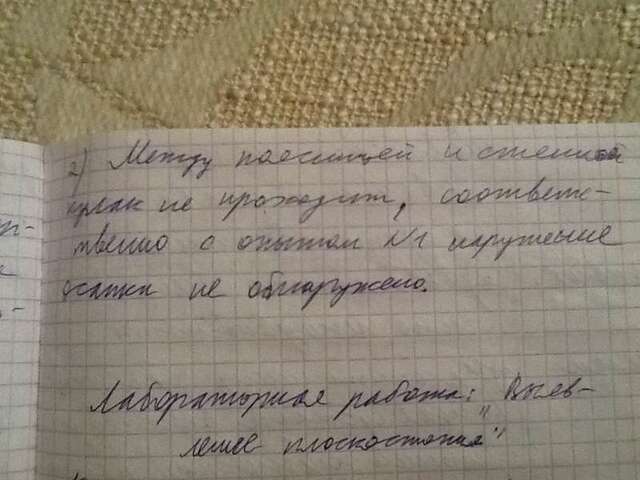 2) Между поясницей и стеной
кулак не проходит, соответс-
твенно с опытом №1 нарушение
осанки не обнаружено.
Лабораторная работа: "Выяв-
ление плоскостопия"